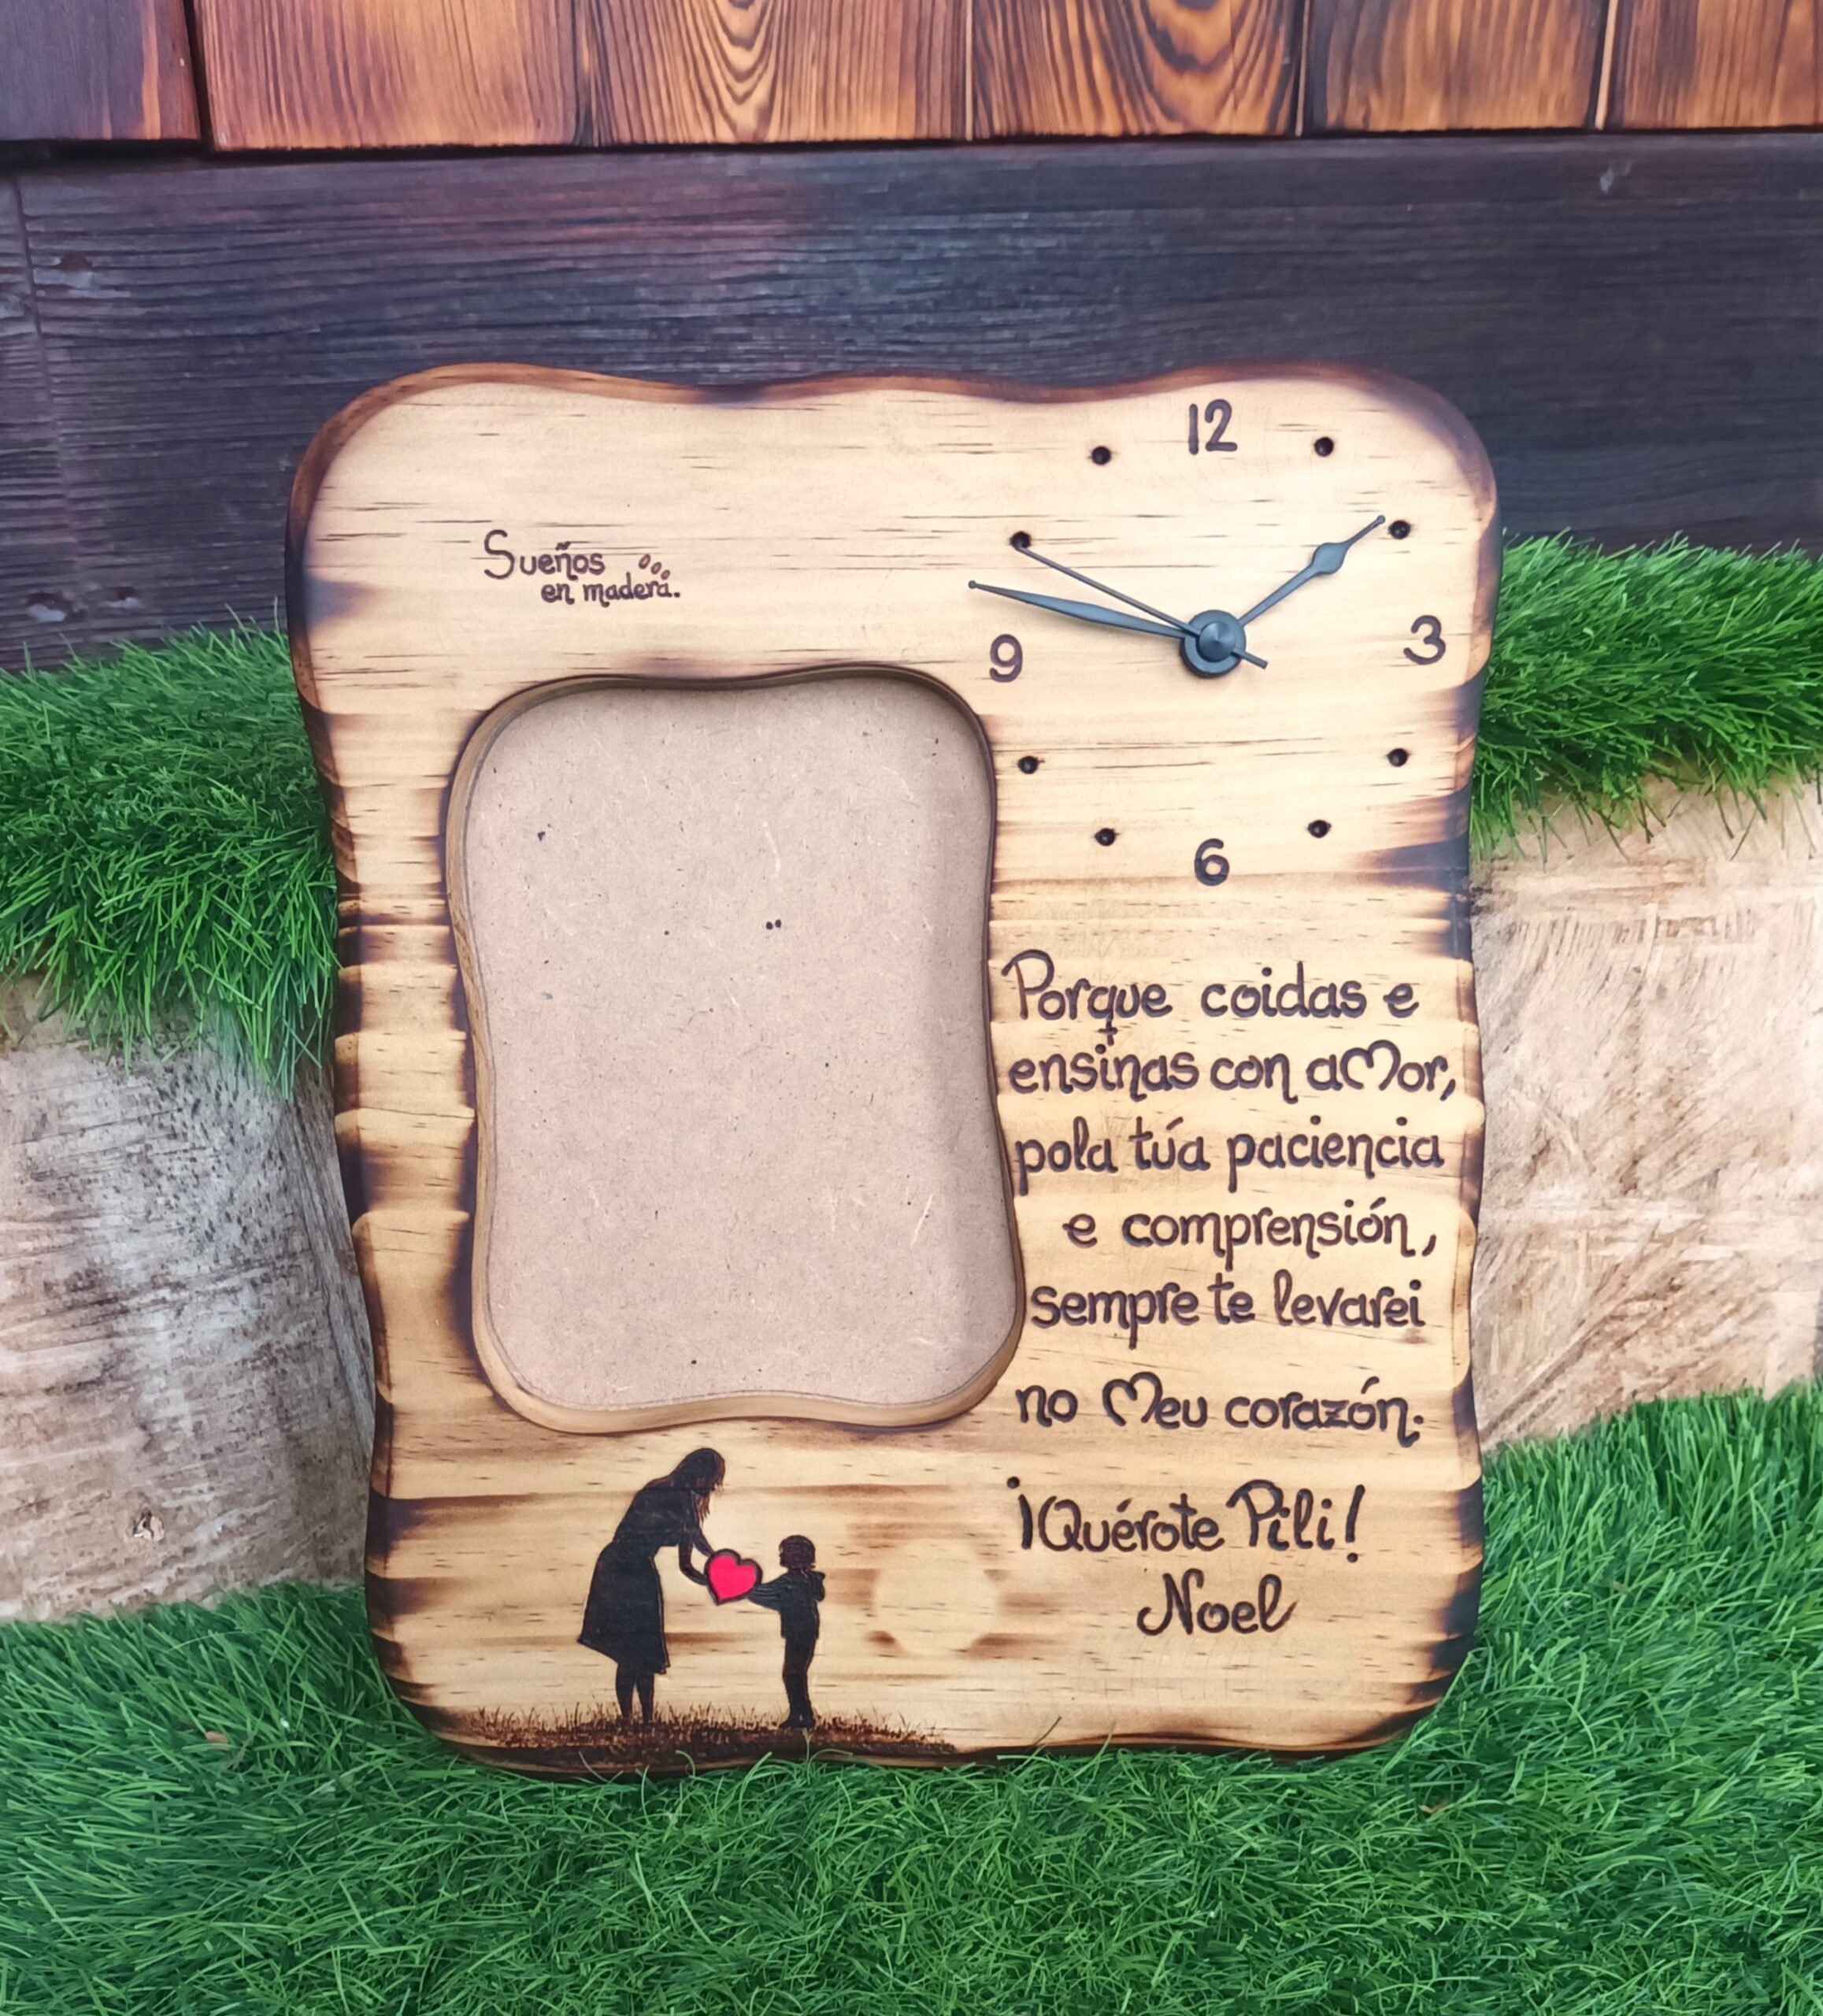 12
Sueños
en madera.
9
3
6
Porque coidas e
ensinas con aMor,
pola túa paciencia
e comprensión,
sempre te levarei
no Meu corazón.
¡Quérote Pili!
Noel